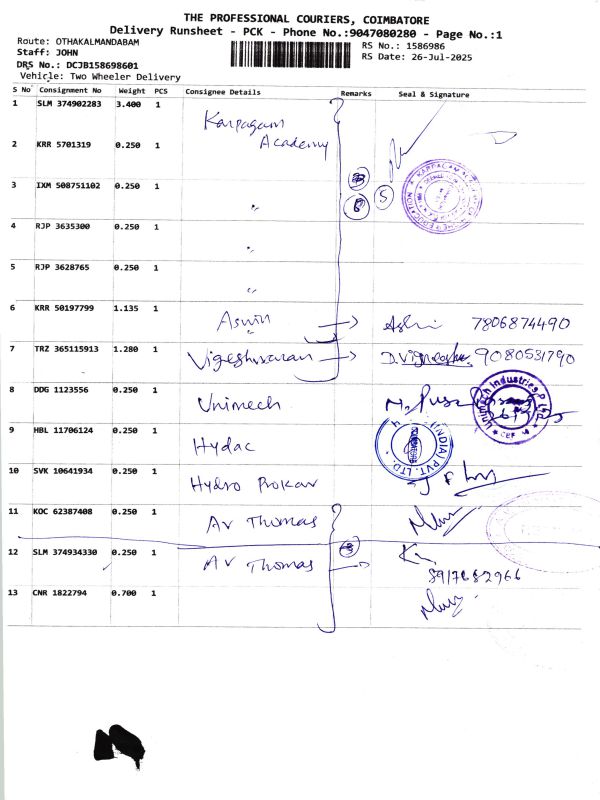 THE PROFESSIONAL COURIERS, COIMBATORE
Delivery Runsheet - PCK - Phone No.:9047080280 - Page No.:1
Route: OTHAKALMANDABAM
RS No.: 1586986
Staff: JOHN
RS Date: 26-Jul-2025
DRS No.: DCJB158698601
Vehicle: Two Wheeler Delivery
S No Consignment No Weight PCS Consignee Details Remarks Seal & Signature
1 SLM 374902283 3.400 1 Karpagam
2 KRR 5701319 0.250 1 Academy
3 IXM 508751102 0.250 1 " 6 5
4 RJP 3635300 0.250 1 "
5 RJP 3628765 0.250 1 "
6 KRR 50197799 1.135 1 Aswin 7806874490
7 TRZ 365115913 1.280 1 Vigeshwaran 9080531790
8 DDG 1123556 0.250 1 Unimech Unimech Industries P Ltd
9 HBL 11706124 0.250 1 Hydac (INDIA) PVT. LTD.
10 SVK 10641934 0.250 1 Hydro Prokav
11 KOC 62387408 0.250 1 AV Thomas
12 SLM 374934330 0.250 1 AV Thomas
13 CNR 1822794 0.700 1